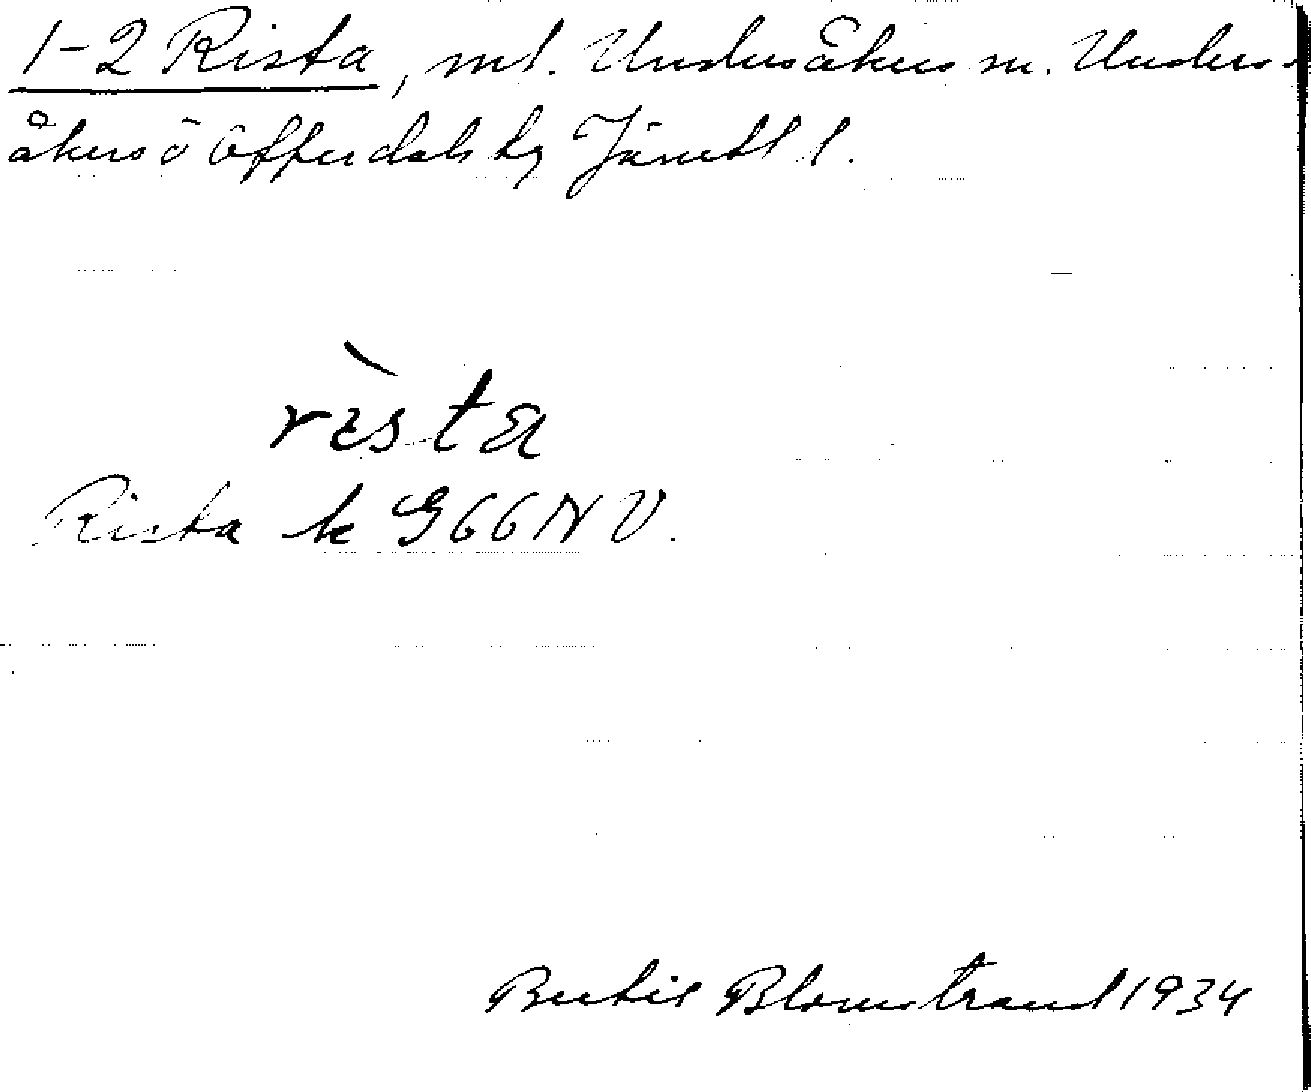 1-2 Rista, ml. Undersåkers sn. Unders-
åkers o Offerdals tg Jämtl l.
rista
Rista k G66NV.
Bertil Blomstrand 1934